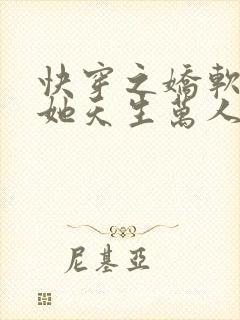 快穿之嬌軟
她天生萬人
尼基亞